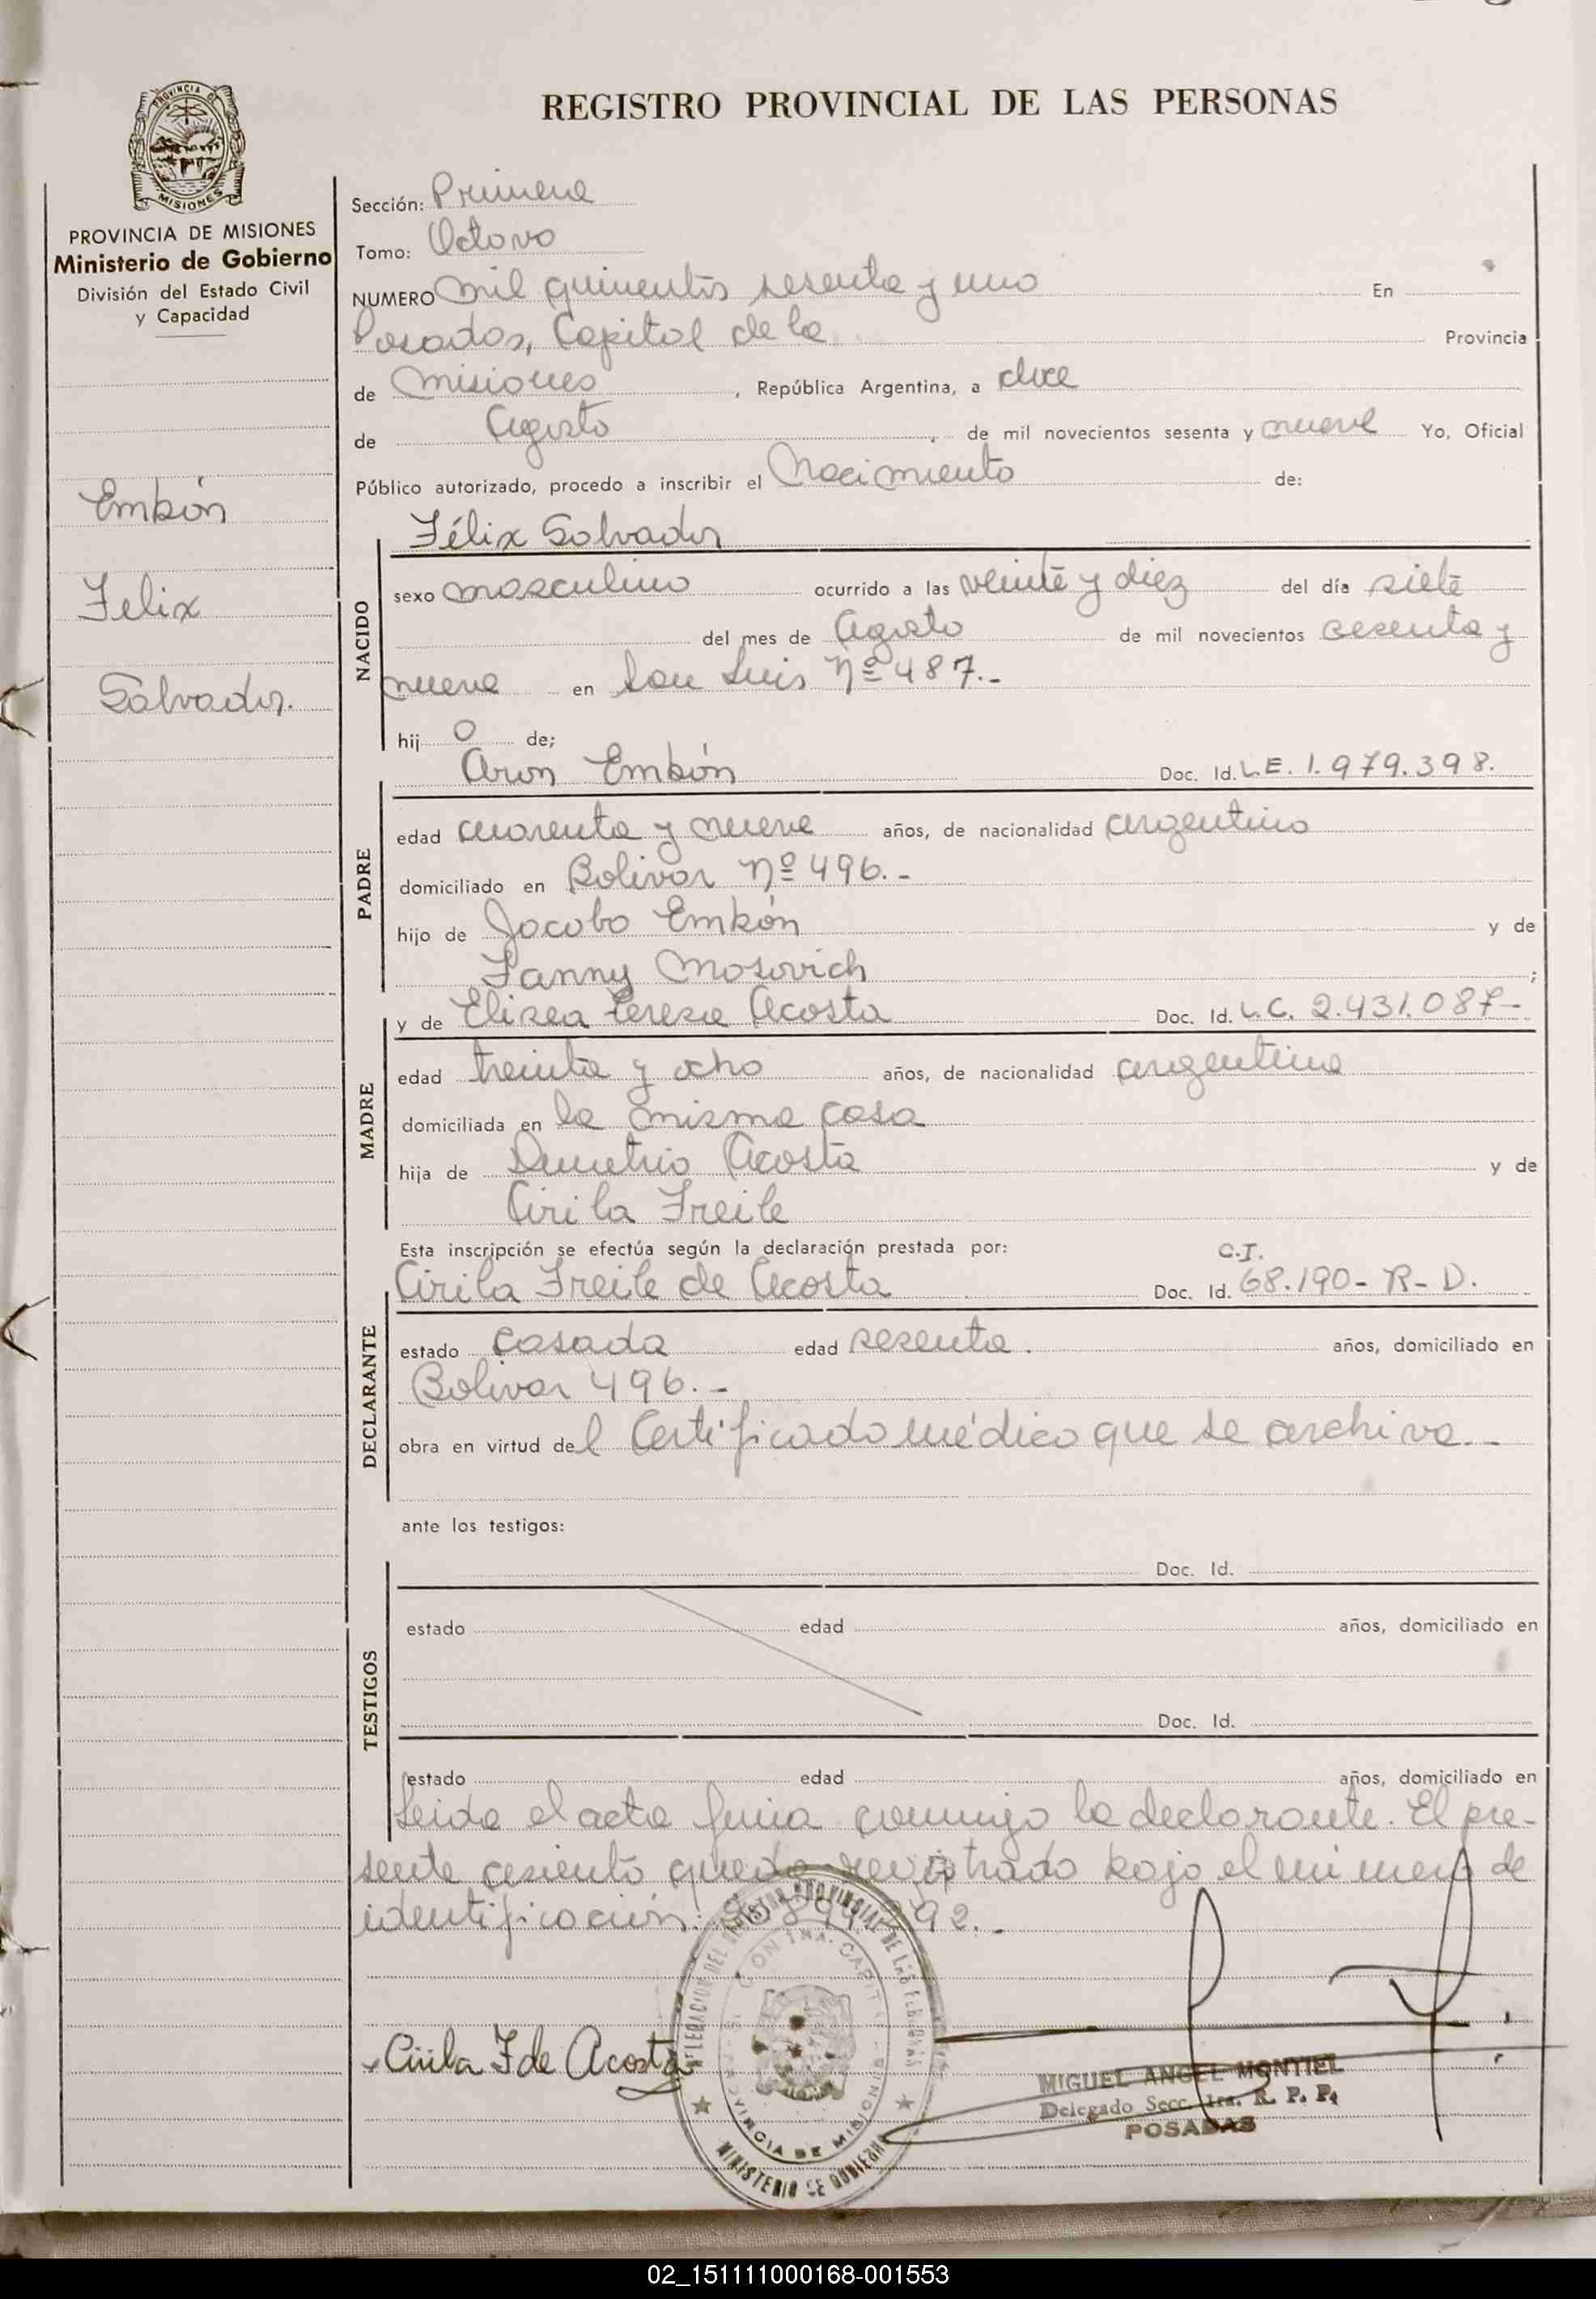 REGISTRO PROVINCIAL DE LAS PERSONAS
PROVINCIA DE
MISIONES
PROVINCIA DE MISIONES
Ministerio de Gobierno
División del Estado Civil
y Capacidad
Embón
Felix
Salvador.
Sección: Primera
Tomo: Octavo
NUMERO mil quinientos sesenta y uno En
Posadas, Capital de la Provincia
de Misiones, República Argentina, a doce
de Agosto, de mil novecientos sesenta y nueve Yo, Oficial
Público autorizado, procedo a inscribir el Nacimiento de:
Félix Salvador
NACIDO
sexo masculino ocurrido a las veinte y diez del día siete
del mes de Agosto de mil novecientos sesenta y
nueve en San Luis Nº 487.-
hij o de;
Aron Embón Doc. Id. L.E. 1.979.398.
PADRE
edad cuarenta y nueve años, de nacionalidad argentino
domiciliado en Bolivar Nº 496.-
hijo de Jacobo Embón y de
Fanny Mosovich;
y de Elisea teresa Acosta Doc. Id. L.C. 2.431.087-
MADRE
edad treinta y ocho años, de nacionalidad argentina
domiciliada en la misma casa
hija de Demetrio Acosta y de
Cirila Freile
Esta inscripción se efectúa según la declaración prestada por:
C.I.
Cirila Freile de Acosta Doc. Id. 68.190- R- D.
DECLARANTE
estado casada edad sesenta. años, domiciliado en
Bolivar 496.-
obra en virtud del Certificado médico que se archiva.-
ante los testigos:
Doc. Id.
TESTIGOS
estado edad años, domiciliado en
Doc. Id.
estado edad años, domiciliado en
Leida el acta firma conmigo la declarante. El pre-
sente asiento queda registrado bajo el numero de
identificación:
Cirila F de Acosta
DELEGACION DEL REGISTRO PROVINCIAL DE LAS PERSONAS
PROVINCIA DE MISIONES
MINISTERIO DE GOBIERNO
MIGUEL ANGEL MONTIEL
Delegado Secc. 1ra. R. P. P.
POSADAS
02_151111000168-001553